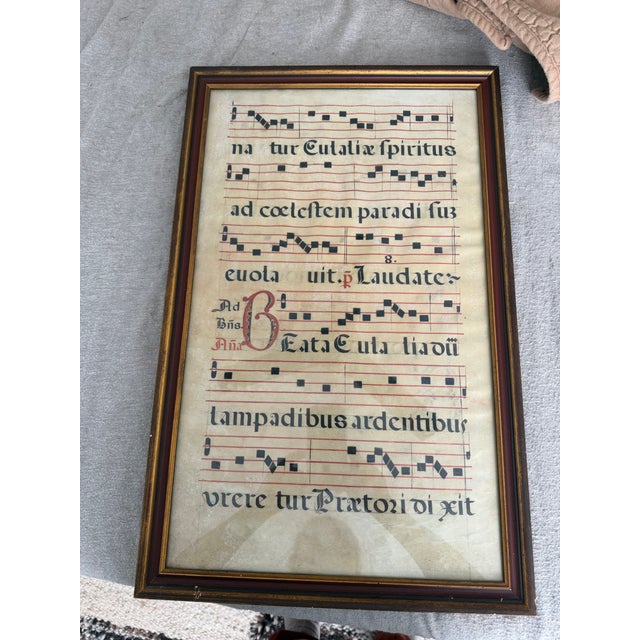 na tur Eulaliæ spiritus
ad cœlestem paradi sub
euola uit. p̃ Laudate
8.
Ad
Bñs.
Aña
BEata Eula liadũ
lampadibus ardentibus
vrere tur Prætori di xit